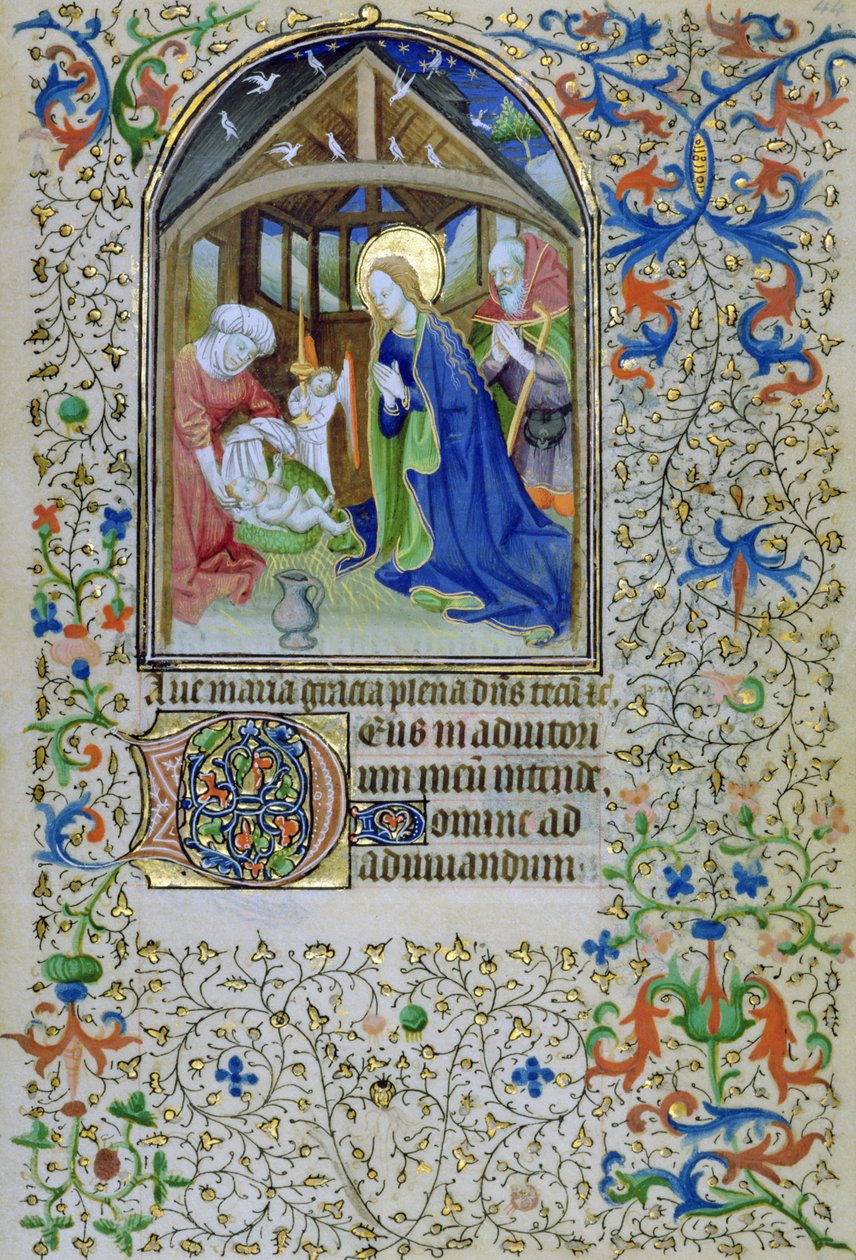 44
Ave maria gracia plena dñs tecũ ⁊c̃.
Deus in adiutori
um meũ intende,
Domine ad
adiuuandum